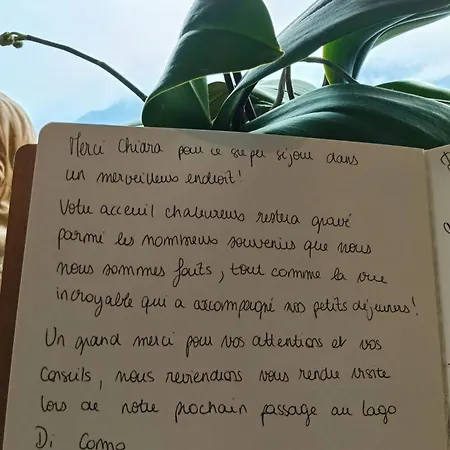 Merci Chiara pour ce super séjour dans
un merveilleux endroit!
Votre acceuil chaleureux restera gravé
parmi les nommeux souvenirs que nous
nous sommes faits, tout comme la vue
incroyable qui a accompagné nos petits déjeuners!
Un grand merci pour vos attentions et vos
conseils, nous reviendrons vous rendre visite
lors de notre prochain passage au lago
Di Como